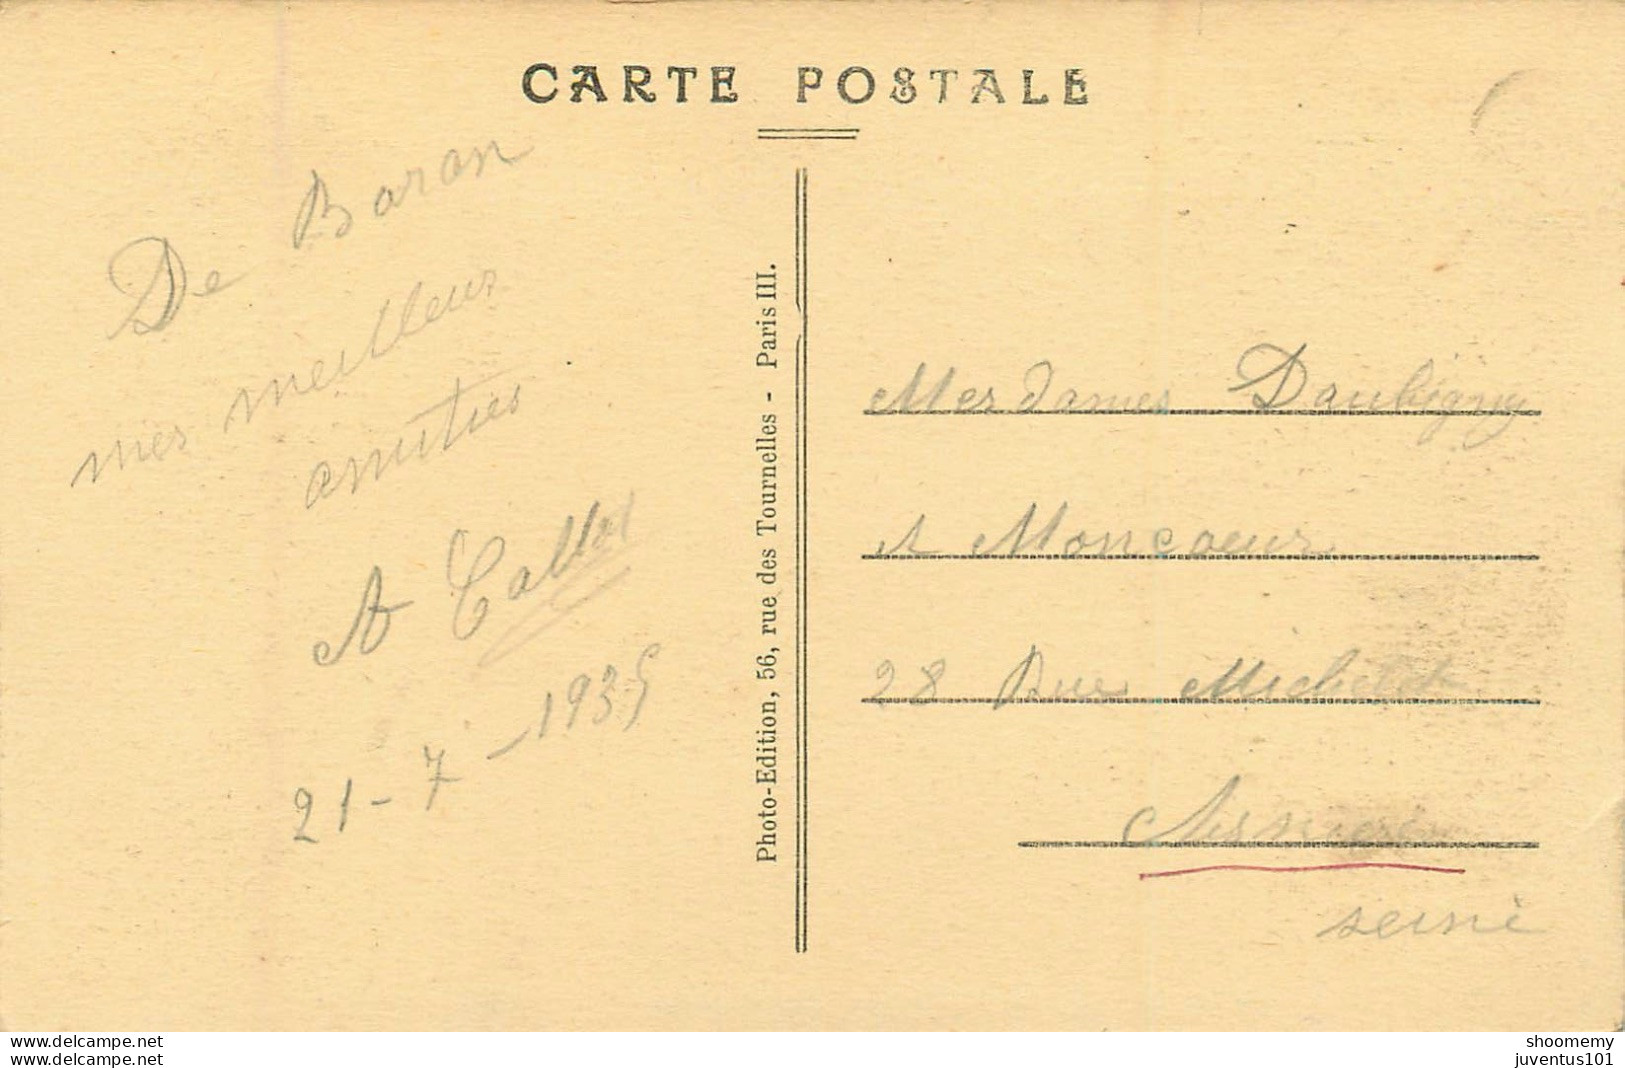 CARTE POSTALE
De Baron
mes meilleurs
amitiés
A Callot
21-7-1935
Photo-Edition, 56, rue des Tournelles - Paris III.
Mesdames Daubigny
et Moncoeur
28 Rue Michelet
Asnières
seine
www.delcampe.net
www.delcampe.net
shoomemy
juventus101